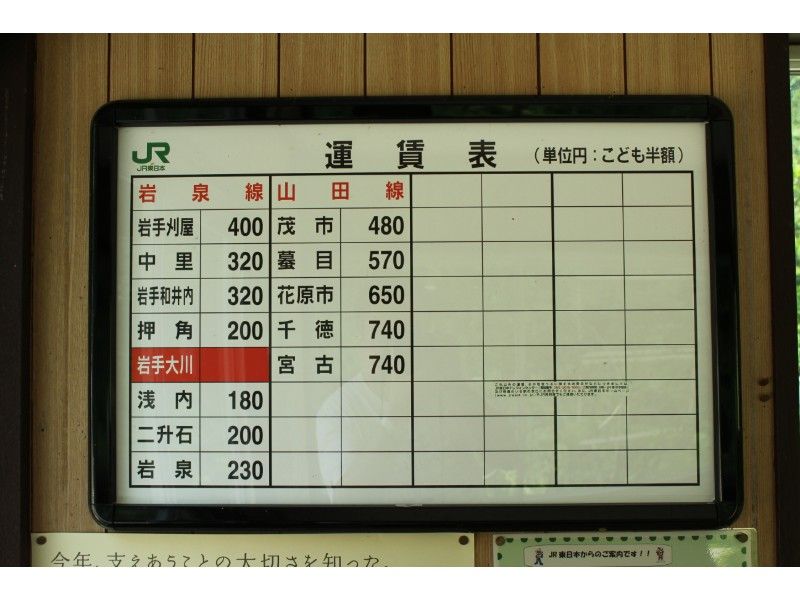 JR
JR東日本
運賃表
(単位円:こども半額)
岩泉線 山田線
岩手刈屋 400 茂市 480
中里 320 蟇目 570
岩手和井内 320 花原市 650
押角 200 千徳 740
岩手大川 宮古 740
浅内 180
二升石 200
岩泉 230
今年、支えあうことの大切さを知った。
JR東日本からのご案内です!!